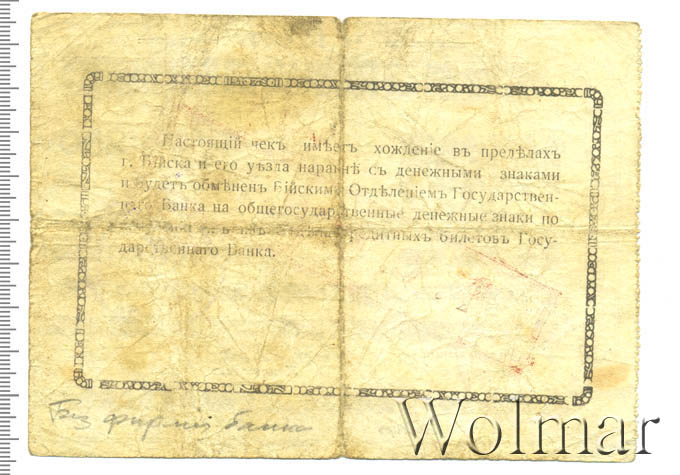 Настоящій чекъ имѣетъ хожденіе въ предѣлахъ
г. Бійска и его уѣзда наравнѣ съ денежными знаками
и будетъ обмѣненъ Бійскимъ Отдѣленіемъ Государствен-
наго Банка на общегосударственные денежные знаки по
кредитныхъ билетовъ Госу-
дарственнаго Банка.
Без фирмы банка
Wolmar